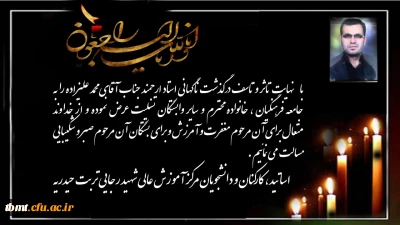 انا لله و انا الیه راجعون
با نهایت تاثر و تاسف درگذشت ناگهانی استاد ارجمند جناب آقای محمد علیزاده را به
جامعه فرهنگیان ، خانواده محترم و سایر وابستگان تسلیت عرض نموده و از خداوند
متعال برای آن مرحوم مغفرت و آمرزش و برای بستگان آن مرحوم صبر و شکیبایی
مسالت می نمائیم .
اساتید، کارکنان و دانشجویان مرکز آموزش عالی شهید رجایی تربت حیدریه
tbmt.cfu.ac.ir